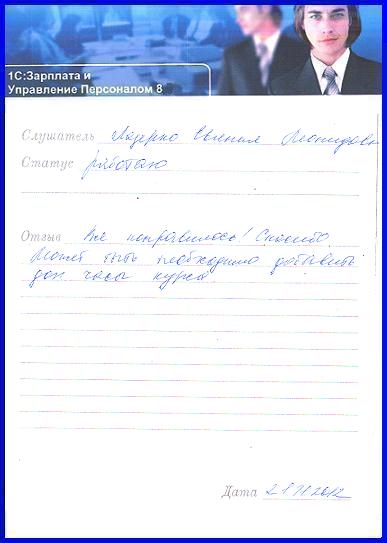 1С:Зарплата и
Управление Персоналом 8
Слушатель Евгения
Статус работаю
Отзыв Всё понравилось! Спасибо.
Может быть необходимо добавить
доп часы курса
Дата 21 11 2012